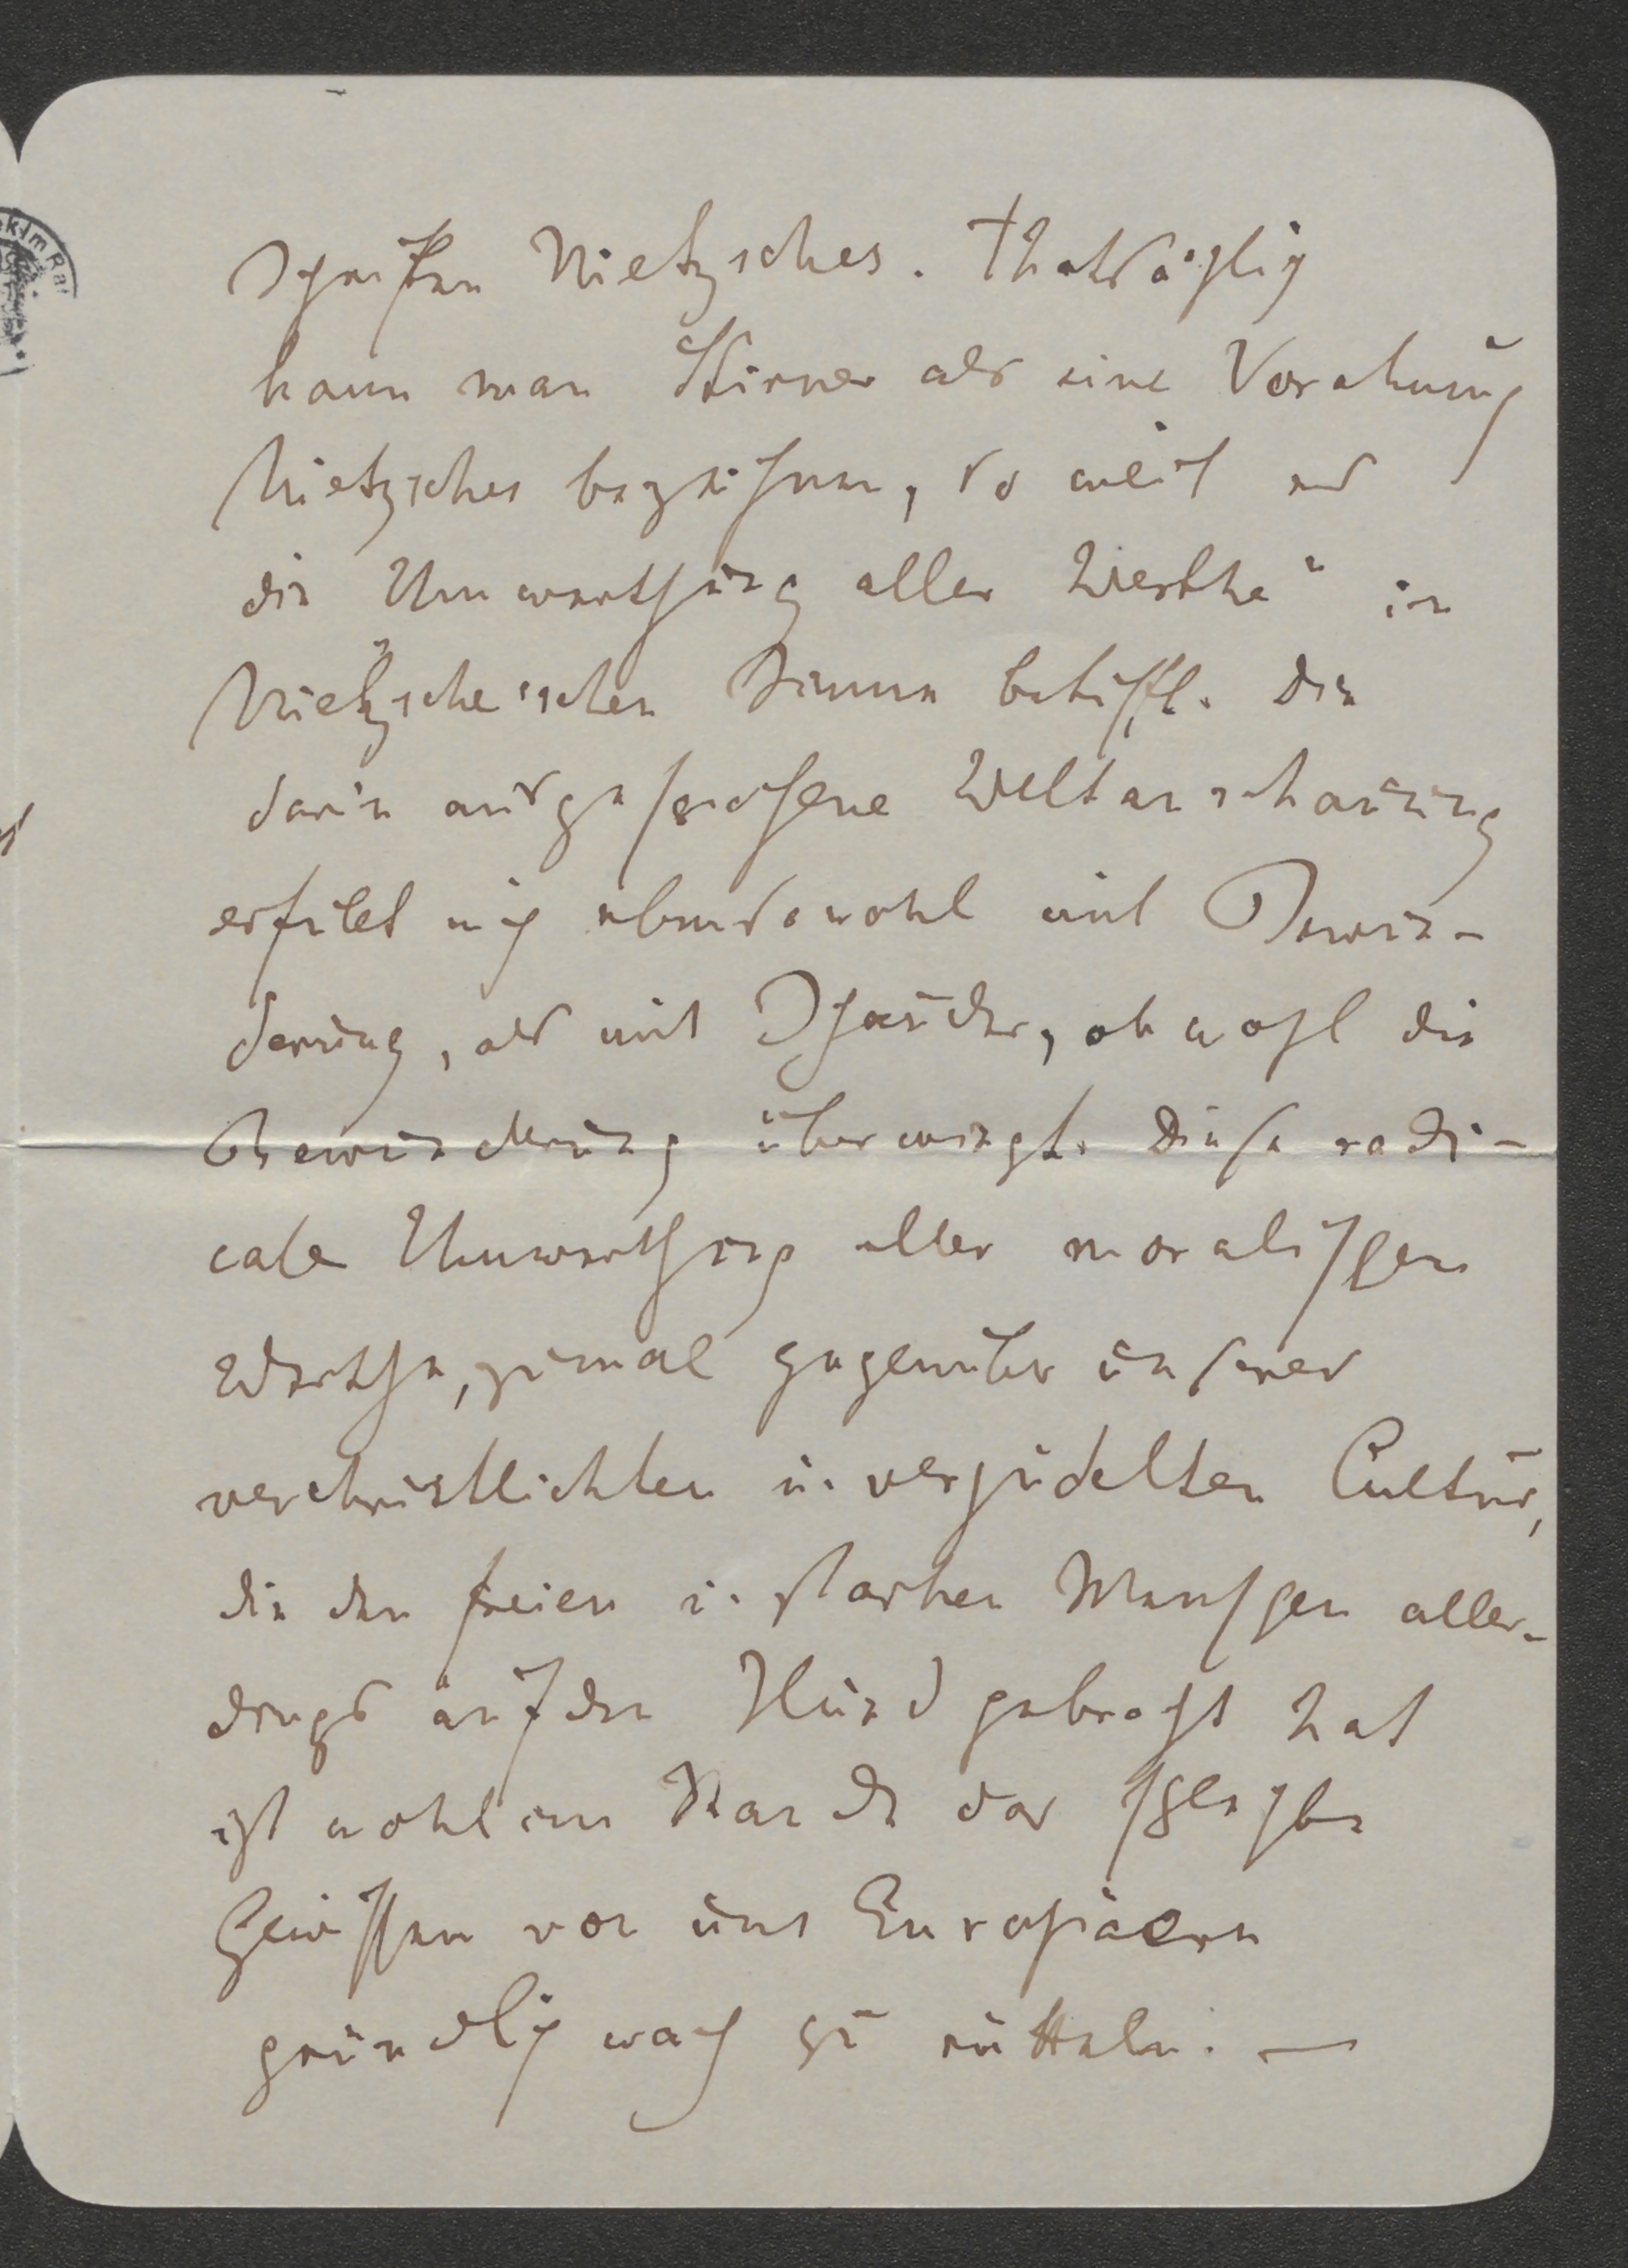 Schriften Nietzsches. Thatsächlich
kann man Stirner als eine Vorahnung
Nietzsches bezeichnen, so weit es
die Umwerthung aller Werthe" im
Nietzsche'schen Sinne betrifft. Die
darin ausgesprochene Weltanschauung
erfüllt mich ebensowohl mit Bewun-
derung, als mit Schauder, obwohl die
Bewunderung überwiegt. Diese radi-
cale Umwerthung aller moralischen
Werthe, zumal gegenüber unserer
verchristlichten u. verjüdelten Cultur,
die den freien u. starken Menschen aller-
dings auf den Hund gebracht hat
ist wohl im Stande das schlechte
Gewissen von uns Europäern
gründlich wach zu rütteln. —
ek im Ra